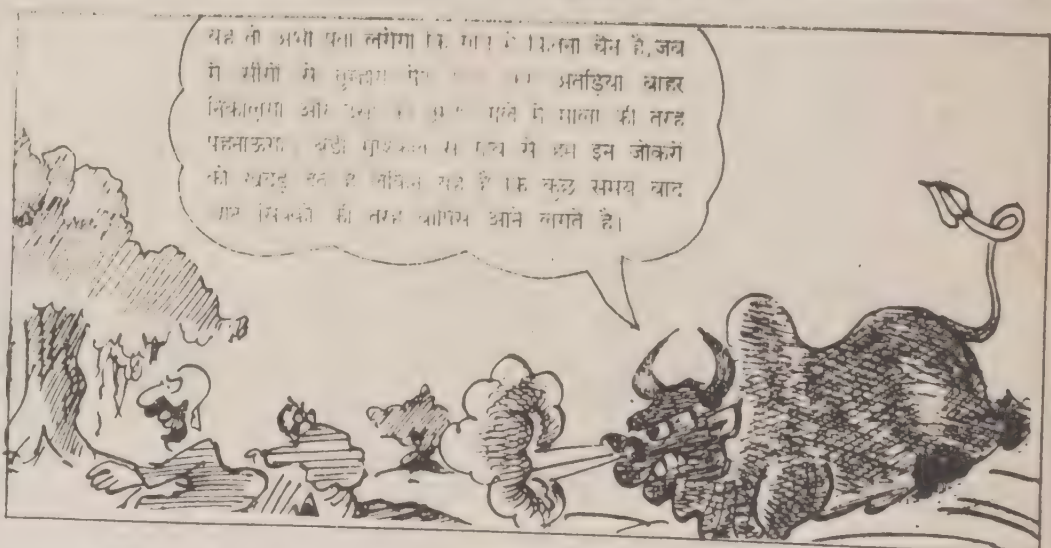 यह तो अभी पता लगेगा कि गांव में कितना चैन है, जब
मैं सींगों से तुम्हारा अंतड़िया बाहर
निकालूंगा और गले में माला की तरह
पहनाऊंगा। बड़ी मुश्किल से गांव से हम इन जोकरों
को खदेड़ देते है लेकिन यह है कि कुछ समय बाद
सिक्कों की तरह वापिस आने लगते है।